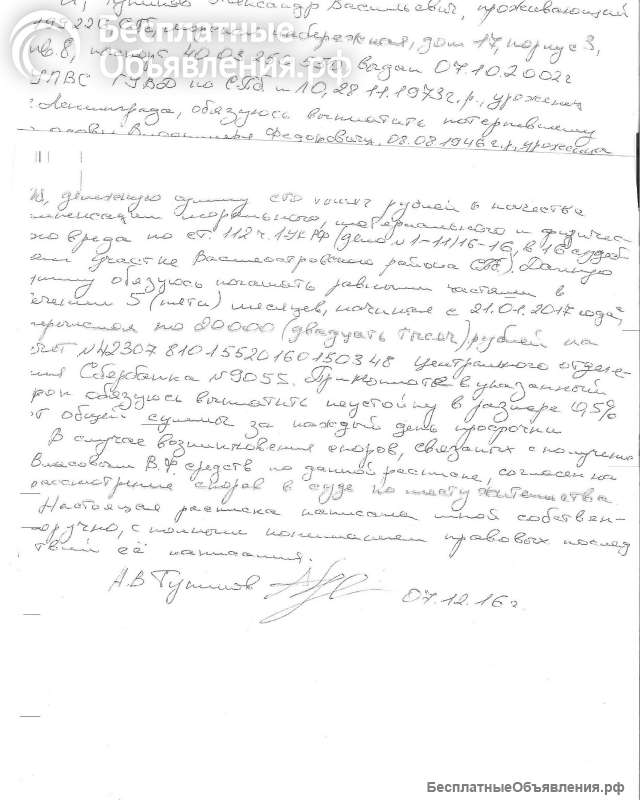 Александр Васильевич, проживающий
СПб, набережная, дом 17, корпус 3,
кв. 8, 40 03 выдан 07.10.2002 г
Бесплатные
Объявления.рф
ГУВД по СПб и ЛО, 28.11.1973 г.р., уроженец
г. Ленинграда, обязуюсь выплатить потерпевшему
Федоровичу, 08.08.1946 г.р., уроженца
денежную сумму сто тысяч рублей в качестве
компенсации морального, материального и физичес-
кого вреда по ст. 112 ч. 1 УК РФ (дело №1-11/16-16, в 16 судеб
ном участке Василеостровского района СПб). Данную
сумму обязуюсь погашать равными частями в
течении 5 (пяти) месяцев, начиная с 21.01.2017 года,
по 20000 (двадцать тысяч) рублей на
счёт №42307 810 1 5520 1601503 48 центрального отделе-
ния Сбербанка №9055. При неоплате в указанный
срок обязуюсь выплатить неустойку в размере 0,5%
от общей суммы за каждый день просрочки
В случае возникновения споров, связанных с получением
Власовым В.Ф средств по данной расписке, согласен на
рассмотрение споров в суде по месту жительства.
Настоящая расписка написана мной собствен-
норучно, с полным пониманием правовых послед
ствий её написания.
А.В 07.12.16 г.
БесплатныеОбъявления.рф